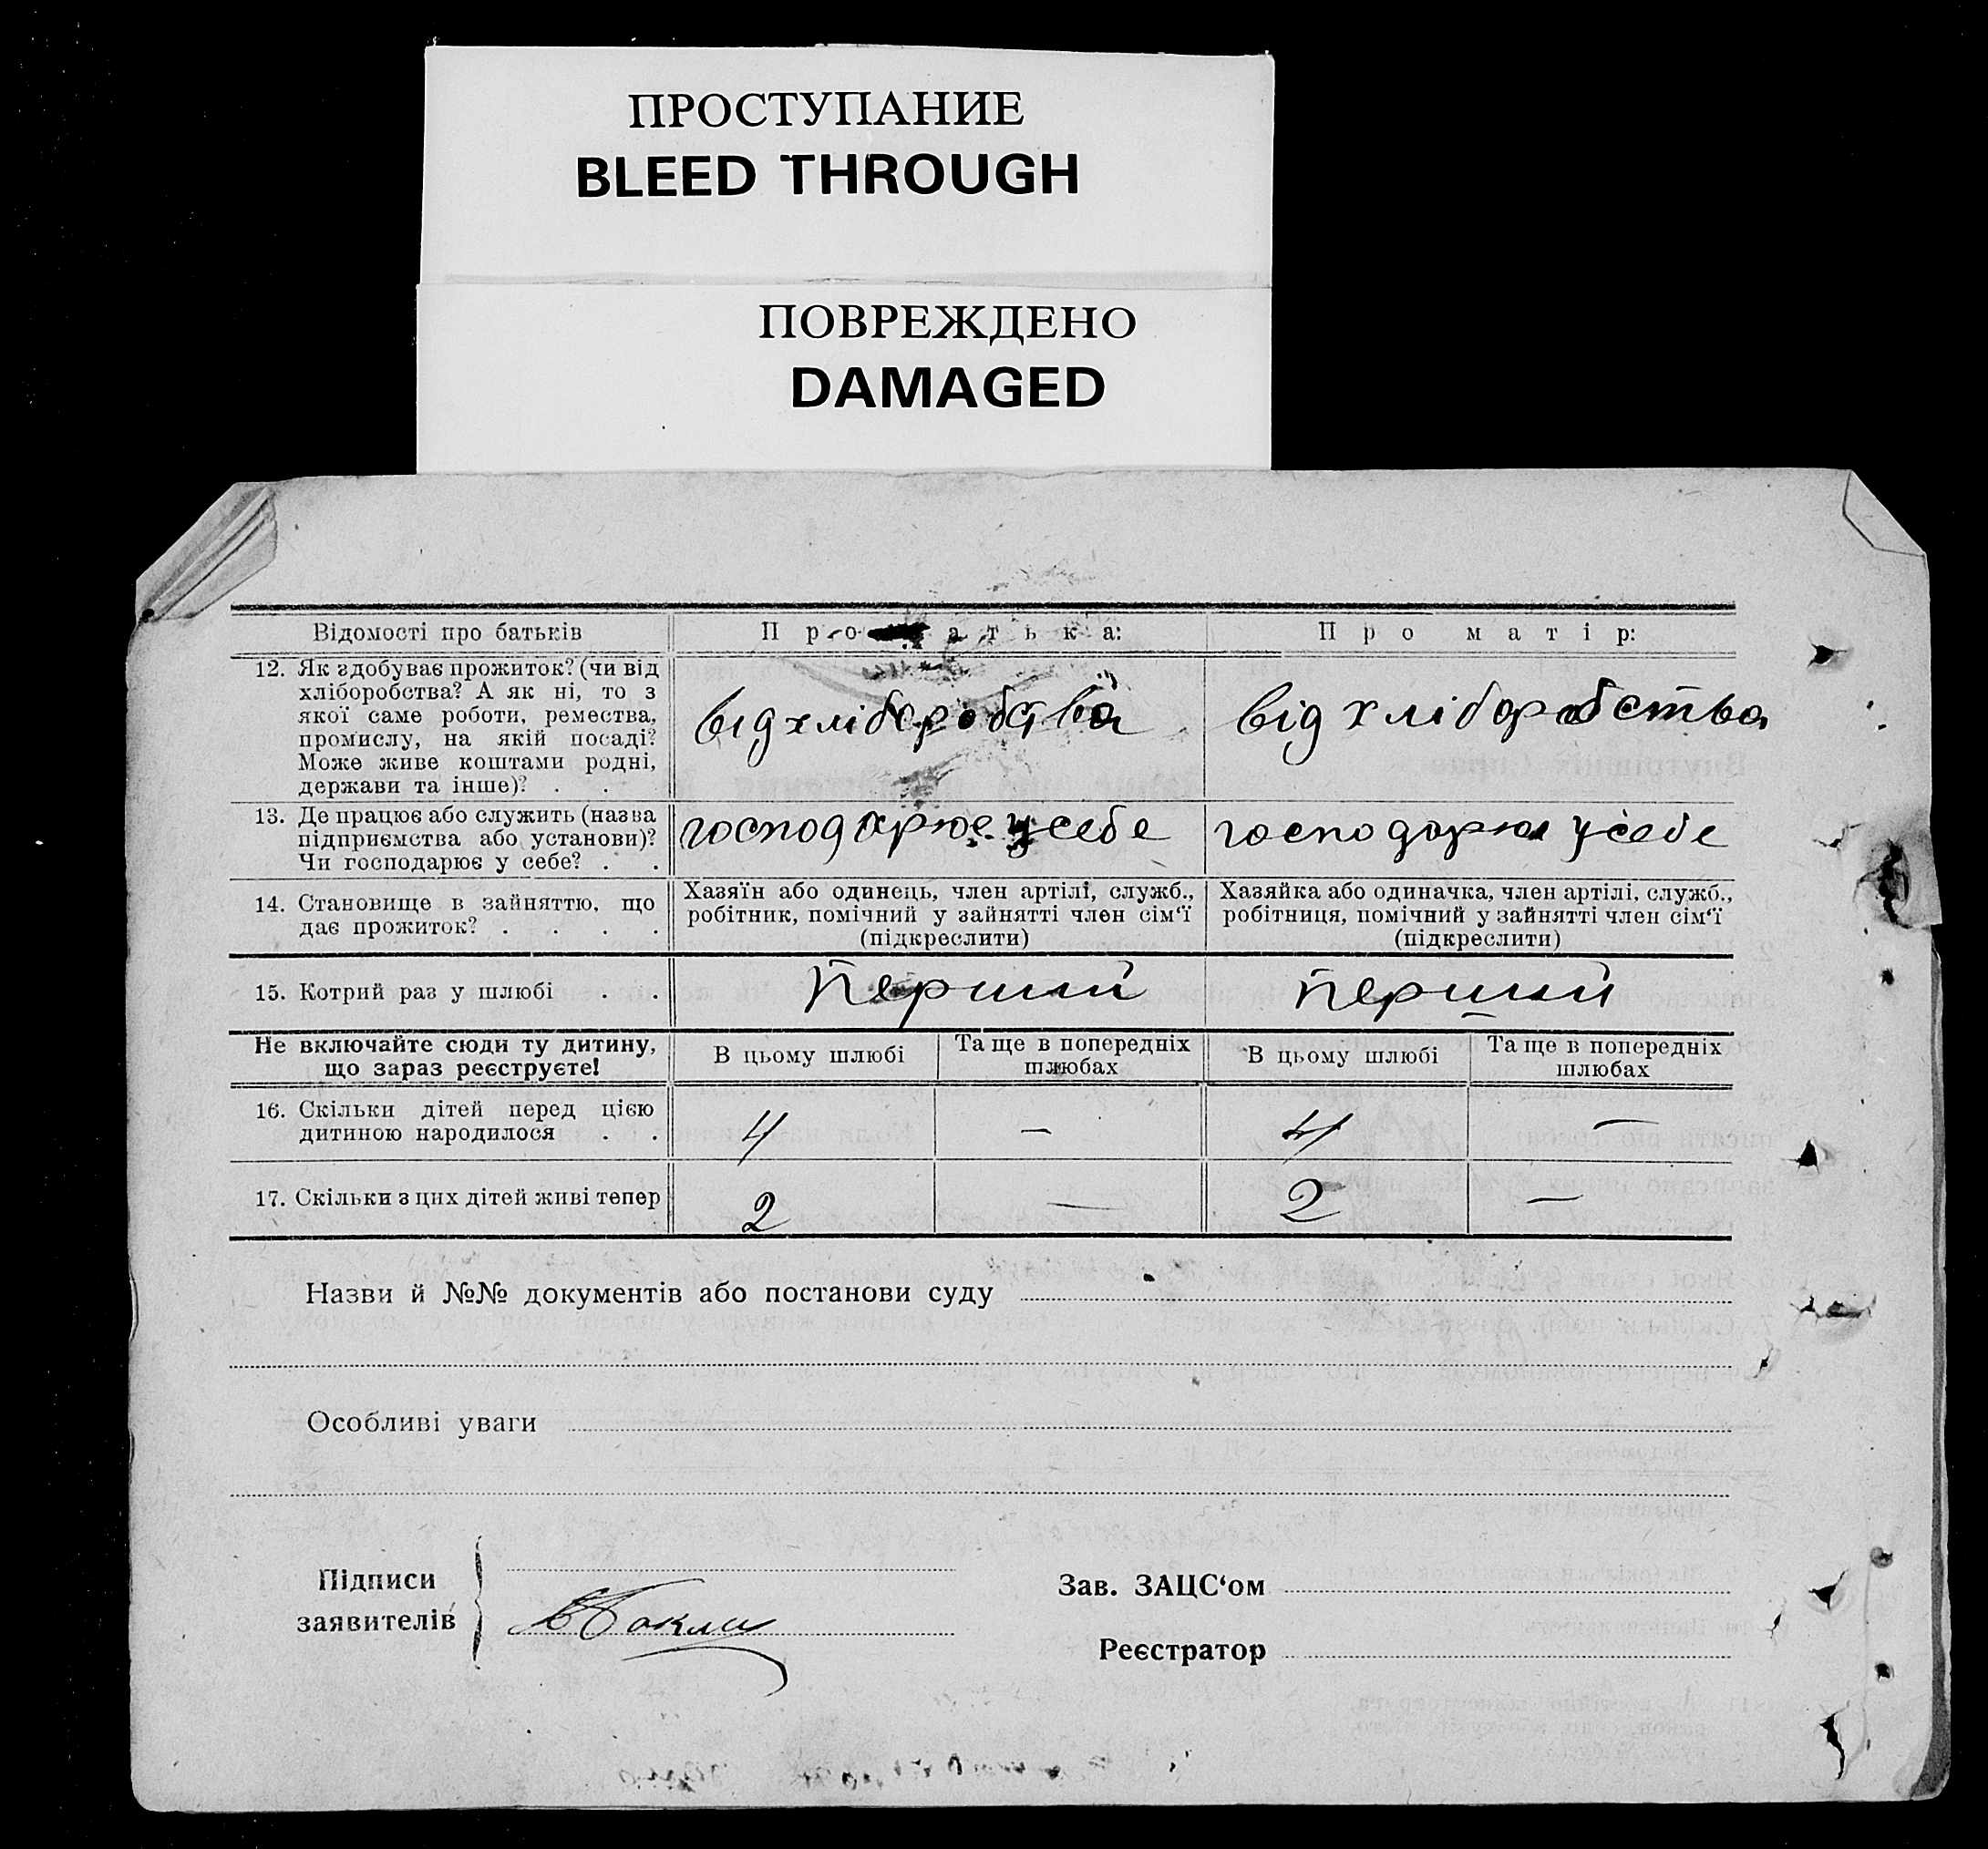 ПРОСТУПАНИЕ
BLEED THROUGH
ПОВРЕЖДЕНО
DAMAGED
Відомості про батьків
Про батька:
Про матір:
12. Як здобуває прожиток? (чи від
хліборобства? А як ні, то з
якої саме роботи, ремества,
промислу, на якій посаді?
Може живе коштами родні,
держави та інше)? . . .
від хліборобства
від хліборобства
13. Де працює або служить (назва
підприємства або установи)?
Чи господарює у себе? . .
господарює у себе
господарює у себе
14. Становище в зайняттю, що
дає прожиток? . . . .
Хазяїн або одинець, член артілі, служб.,
робітник, помічний у зайнятті член сім'ї
(підкреслити)
Хазяйка або одиначка, член артілі, служб.,
робітниця, помічний у зайнятті член сім'ї
(підкреслити)
15. Котрий раз у шлюбі . .
Перший
перший
Не включайте сюди ту дитину,
що зараз реєструєте!
В цьому шлюбі
Та ще в попередніх
шлюбах
В цьому шлюбі
Та ще в попередніх
шлюбах
16. Скільки дітей перед цією
дитиною народилося . .
4
—
4
—
17. Скільки з цих дітей живі тепер
2
—
2
—
Назви й №№ документів або постанови суду
Особливі уваги
Підписи
заявителів
Зав. ЗАЦС'ом
Реєстратор